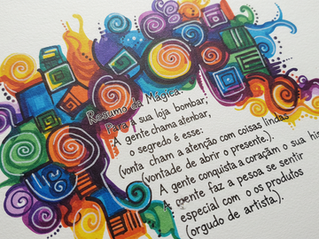 Resumo da Mágica:
Para a sua loja bombar,
A gente chama atenbar,
o segredo é esse:
(vonta cham a atenção com coisas lindas
(vontade de abrir o presente.).
A gente conquista a coraçãm o sua his
mente faz a pessoa se sentir
especial com o os produtos
(orgudo de artista).